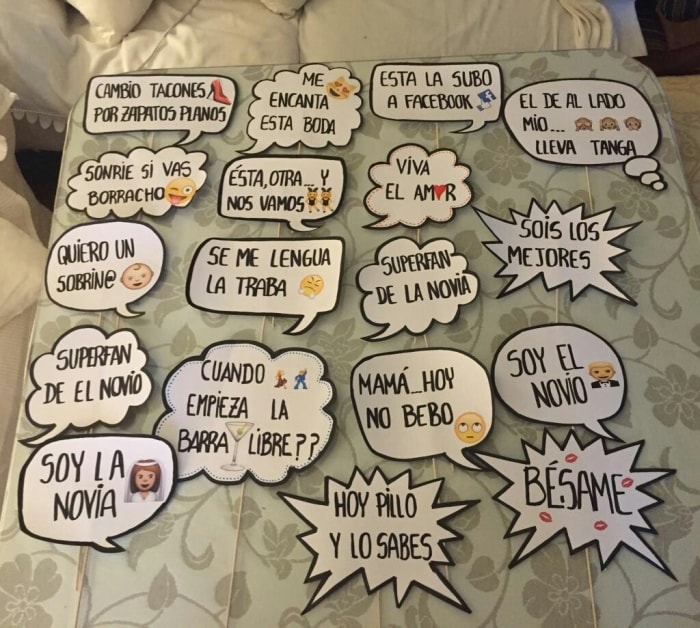 CAMBIO TACONES
POR ZAPATOS PLANOS
ME
ENCANTA
ESTA BODA
ESTA LA SUBO
A FACEBOOK
EL DE AL LADO
MÍO...
LLEVA TANGA
SONRIE SI VAS
BORRACHO
ÉSTA, OTRA... Y
NOS VAMOS
VIVA
EL AMOR
SOIS LOS
MEJORES
QUIERO UN
SOBRIN@
SE ME LENGUA
LA TRABA
SUPERFAN
DE LA NOVIA
SUPERFAN
DE EL NOVIO
CUANDO
EMPIEZA LA
BARRA LIBRE??
MAMÁ...HOY
NO BEBO
SOY EL
NOVIO
SOY LA
NOVIA
HOY PILLO
Y LO SABES
BÉSAME